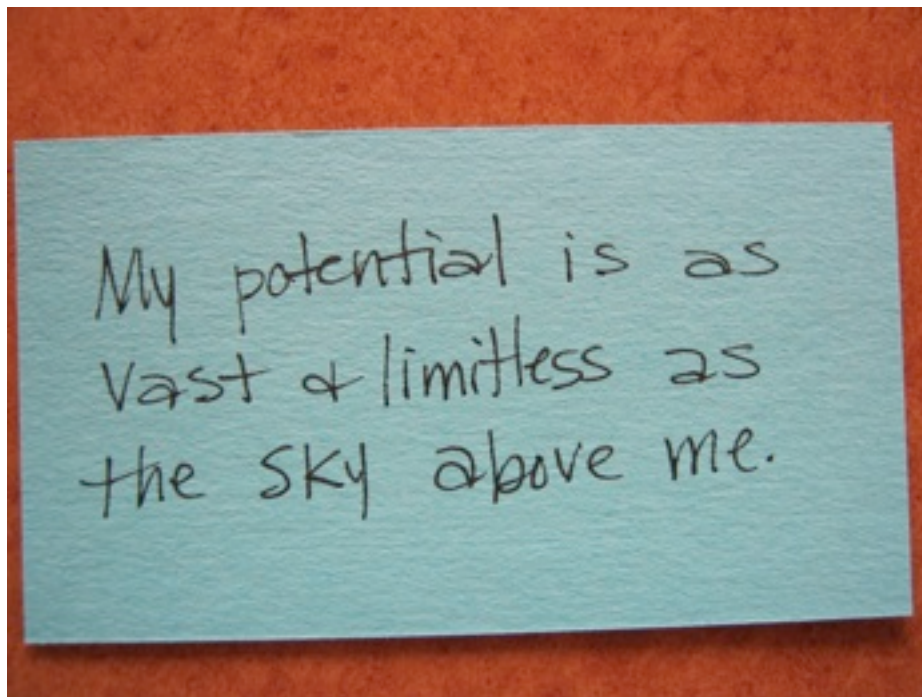 My potential is as
vast & limitless as
the sky above me.